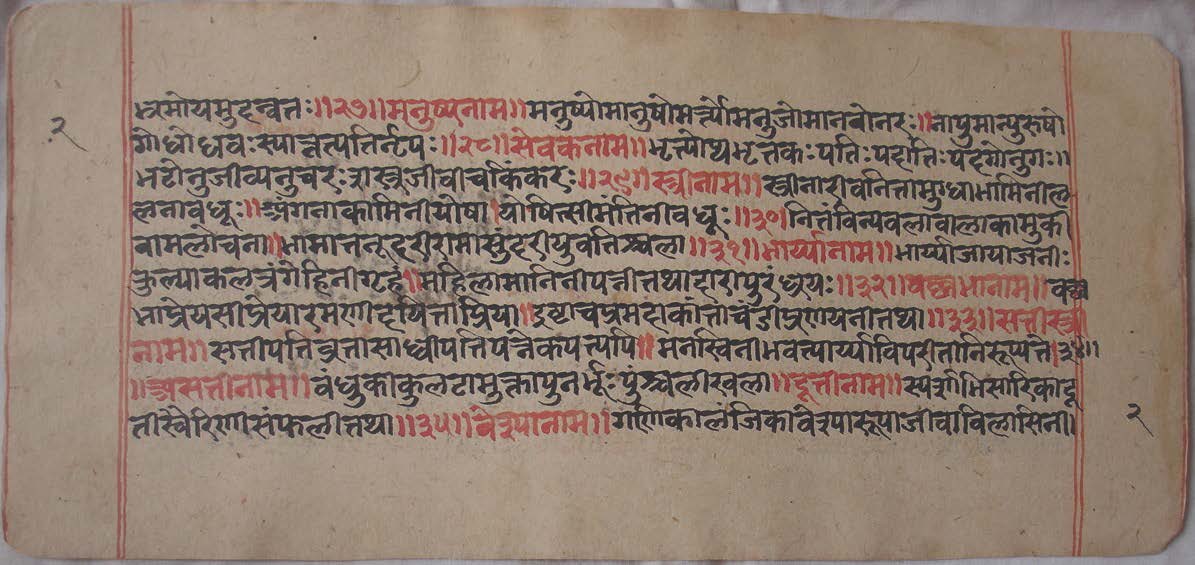 २
ध्रमोयमुदन्वतः ॥२७॥ मनुष्यनाम ॥ मनुष्योमानुषोमर्त्योमनुजोमानवोनरः ॥ नापुमान्पुरुषो
गोधोधवः स्यात्तत्पतिर्नृपः ॥२८॥ सेवकनाम ॥ भृत्योथभृतकः पतिः पदातिः पदगोनुगः ॥
भटोनुजीव्यनुचरः शस्त्रजीवीचकिंकरः ॥२९॥ स्त्रीनाम ॥ स्त्रीनारीवनितामुग्धाभामिनील
लनावधूः ॥ अंगनाकामिनीयोषा । योषित्सीमंतिनीवधूः ॥३०॥ नितंविन्यवलावालाकामुकी
वामलोचना ॥ भामातनूदरीरामासुंदरीयुवतिश्चला ॥३१॥ भार्य्यानाम ॥ भार्य्याजायाजनीः
कुल्याकलत्रंगेहिनीगृहं ॥ महिलामानिनीपत्नीतथादारापुरंध्रयः ॥३२॥ वल्लभानाम ॥ वल्ल
भाप्रेयसीप्रेयारमणीदयिताप्रिया ॥ इष्टाचप्रमदाकांताचंडीप्रणयनीतथा ॥३३॥ सतीस्त्री
नाम ॥ सतीपतिव्रतासाध्वीपतिपत्न्येकपत्न्यपि ॥ मनस्विनीभवत्यार्य्याविपरीतानिरूप्यते ।३४॥
॥ असतीनाम ॥ वंधुकीकुलटामुक्तापुनर्भूः पुंश्चलीखला ॥ दूतीनाम ॥ स्पर्शाभिसारिकादू
तीस्वैरिणीसंफलीतथा ॥३५॥ वेश्यानाम ॥ गणिकालंजिकावेश्यारूपाजीवाविलासिनी ।
२